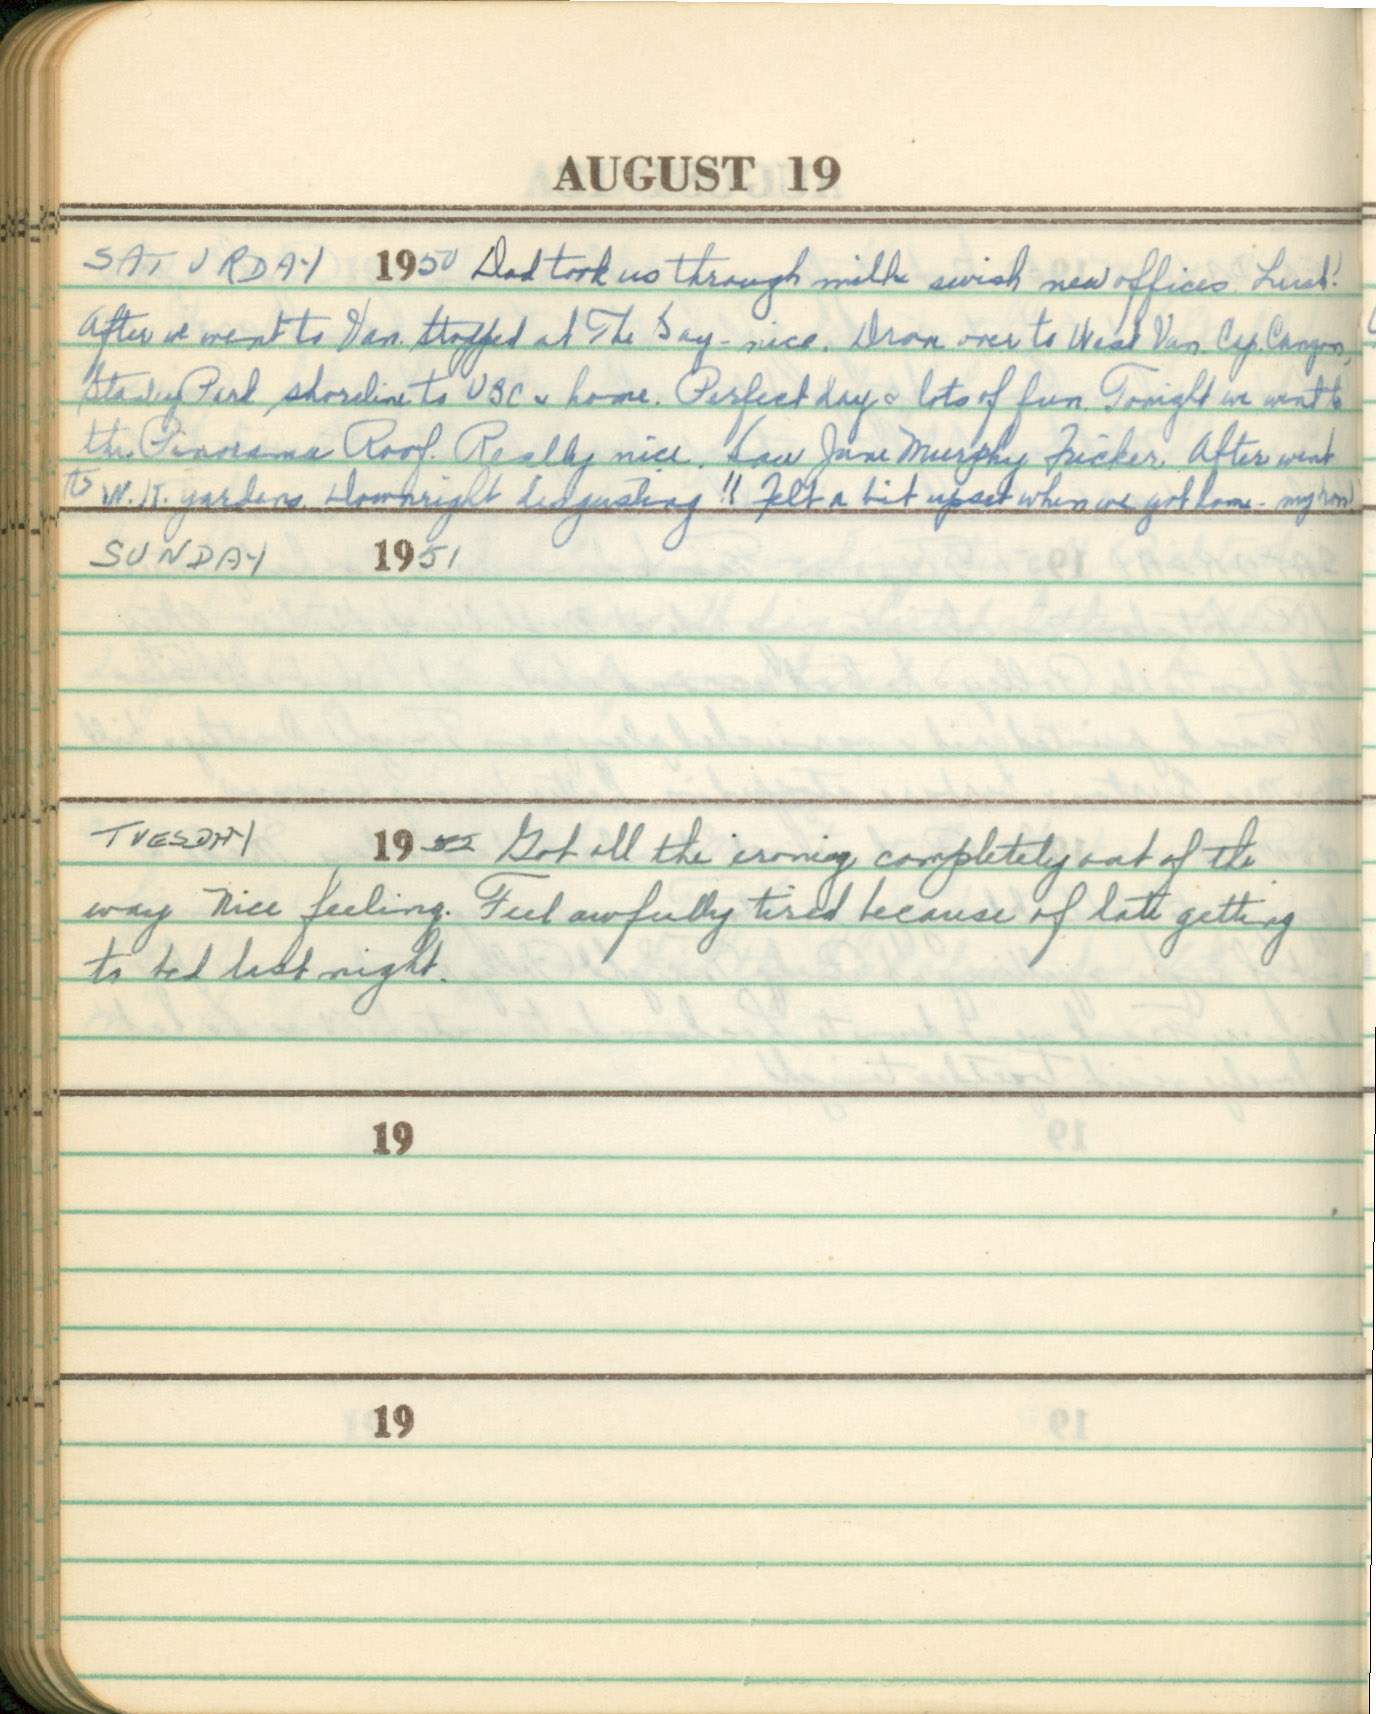 AUGUST 19
SATURDAY 1950 Dad took us through milk swish new offices. Lush!
After we went to Van. Stopped at The Bay - nice. Drove over to West Van. Cap. Canyon,
Stanley Park shoreline to UBC & home. Perfect day & lots of fun. Tonight we went to
the Panorama Roof. Really nice. Saw Jane Murphy Fricker. After went
to W.K. gardens. Downright disgusting!! Felt a bit upset when we got home - my
SUNDAY 1951
TUESDAY 1952 Got all the ironing completely out of the
way Nice feeling. Feel awfully tired because of late getting
to bed last night.
19
19